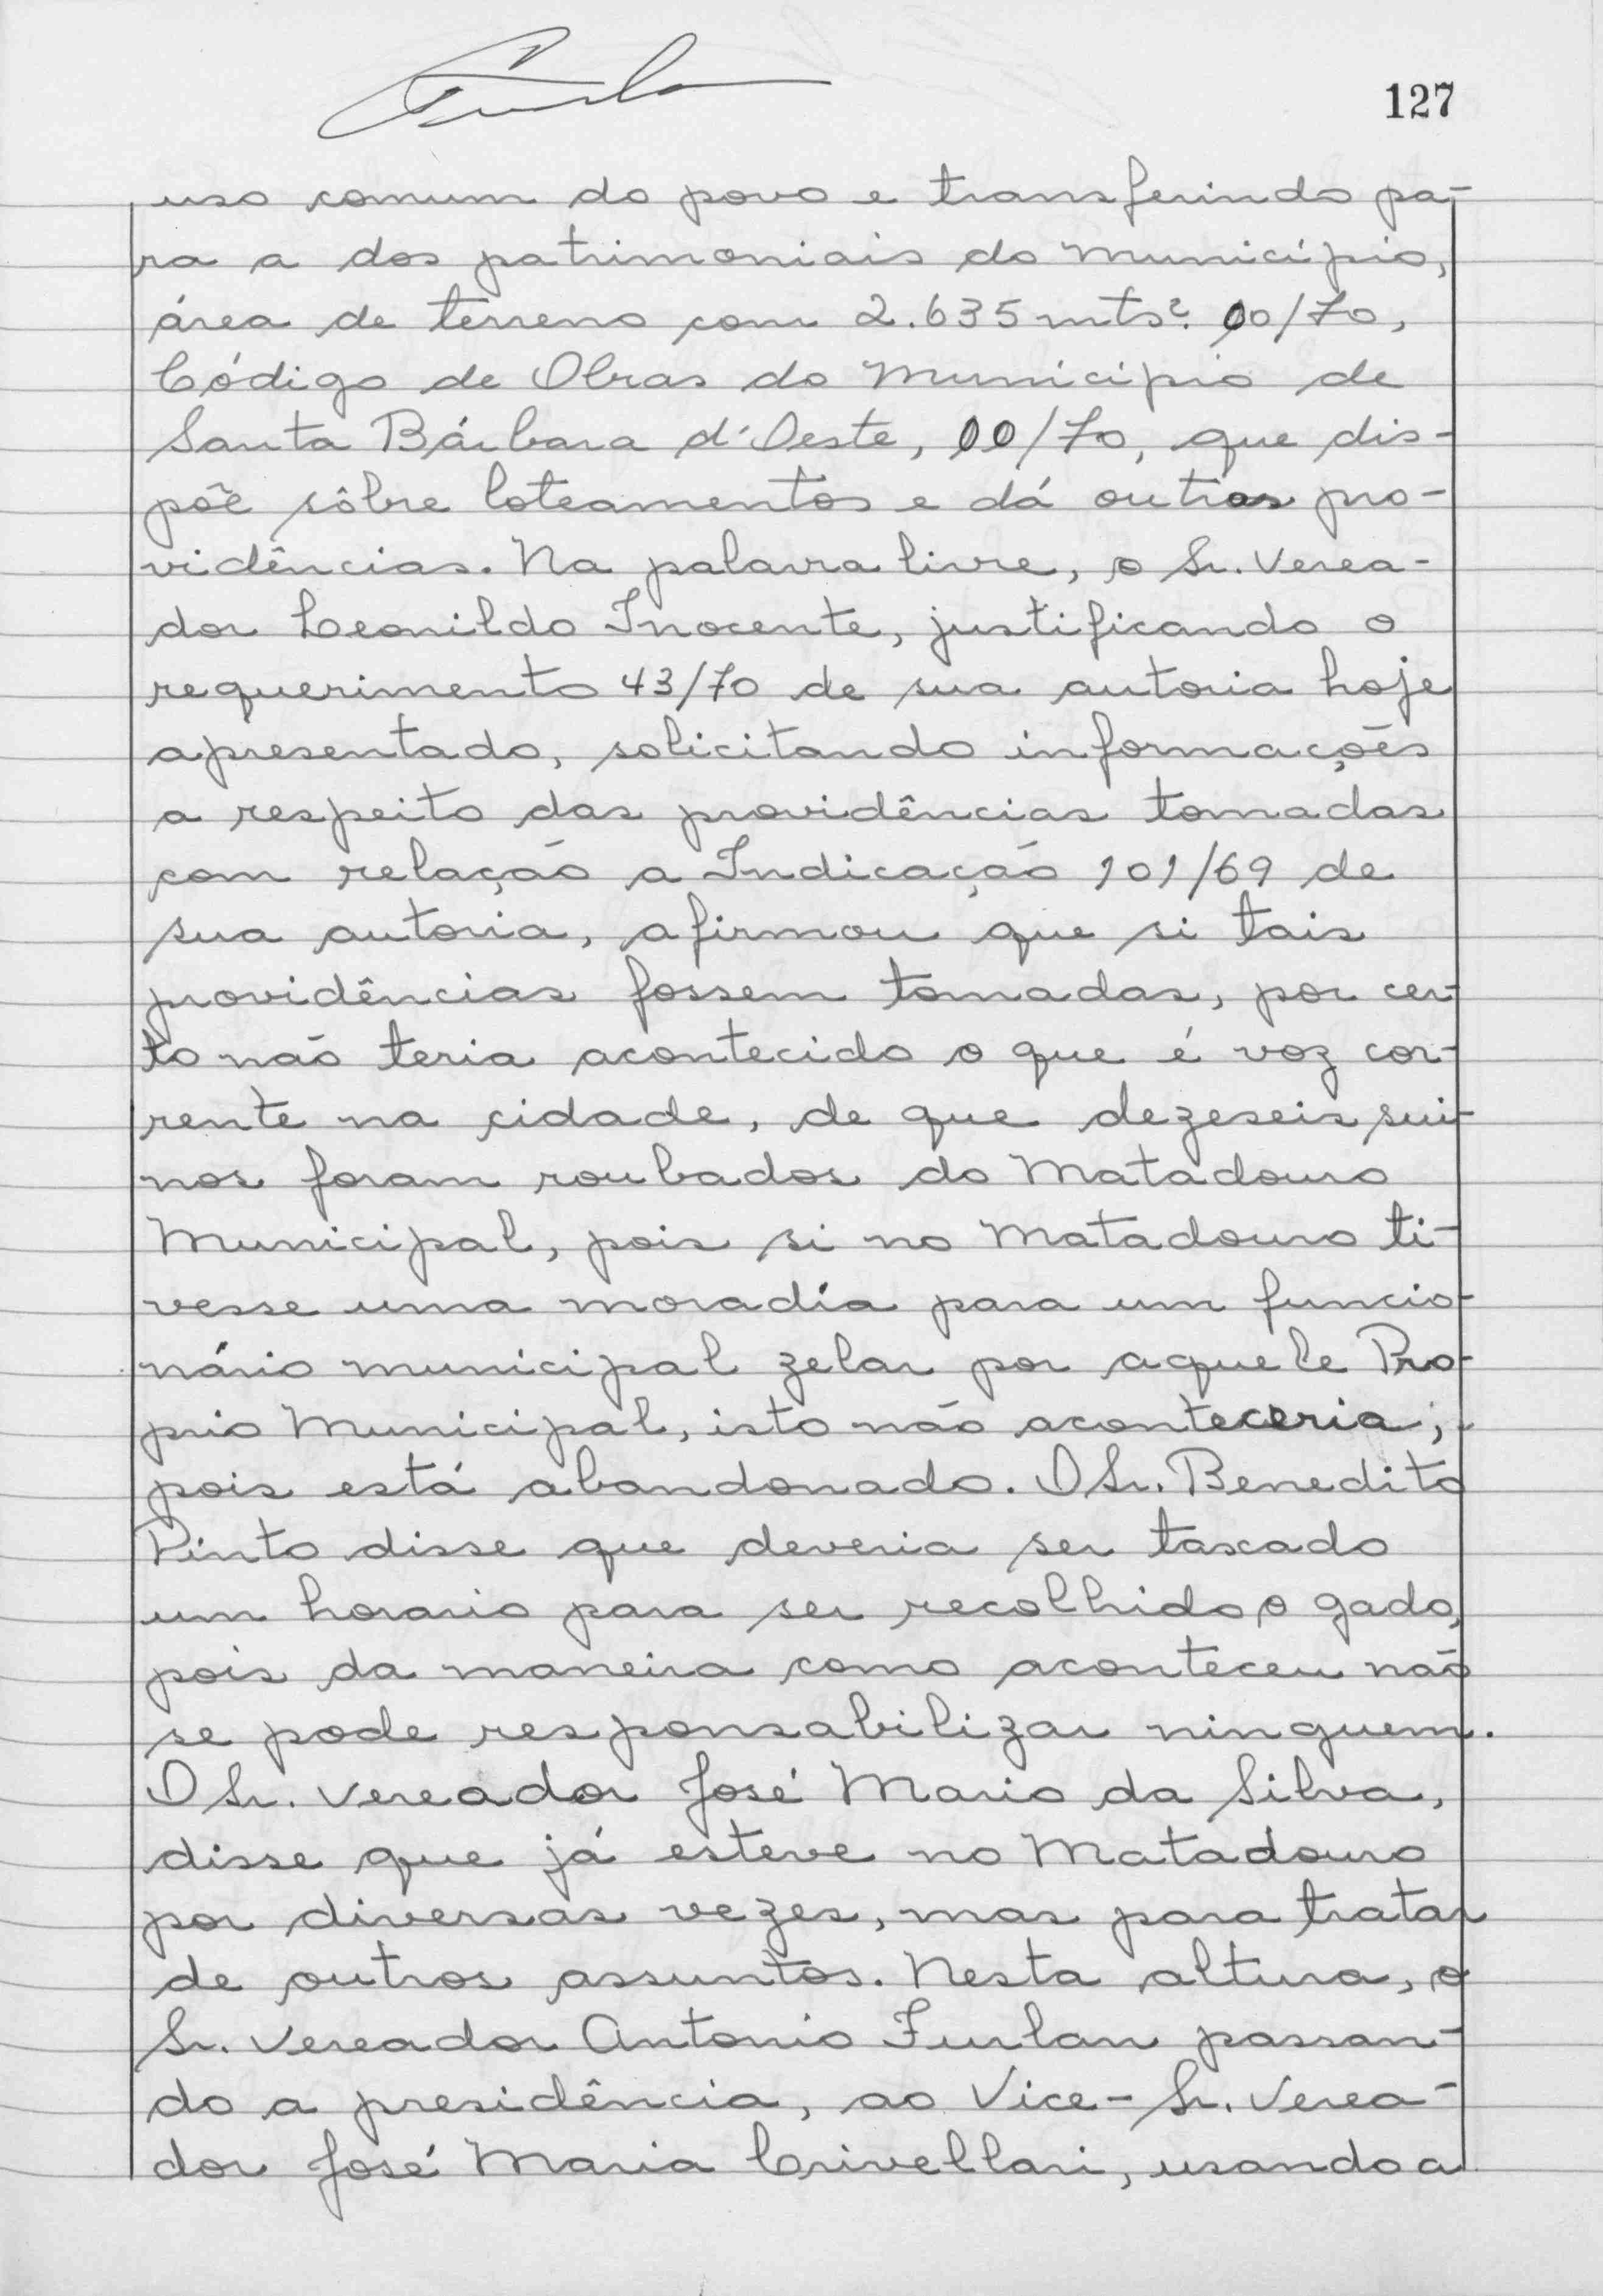 127
uso comum do povo e transferindo pa-
ra a dos patrimoniais do Município,
área de terreno com 2.635 mts². 00/70,
Código de Obras do Municipio de
Santa Bárbara d'Oeste, 00/70, que dis-
põe sôbre loteamentos e dá outras pro-
vidências. Na palavra livre, o Sr. Verea-
dor Leonildo Inocente, justificando o
requerimento 43/70 de sua autoria hoje
apresentado, solicitando informações
a respeito das providências tomadas
com relação a Indicação 101/69 de
sua autoria, afirmou que si tais
providências fossem tomadas, por cer-
to não teria acontecido o que é voz cor-
rente na cidade, de que dezeseis sui-
nos foram roubados do Matadouro
Municipal, pois si no Matadouro ti-
vesse uma moradía para um funcio-
nário municipal zelar por aquele Pro-
prio Municipal, isto não aconteceria;
pois está abandonado. O Sr. Benedito
Pinto disse que deveria ser taxado
um horario para ser recolhido o gado,
pois da maneira como aconteceu não
se pode responsabilizar ninguem.
O Sr. Vereador José Mario da Silva,
disse que já esteve no Matadouro
por diversas vezes, mas para tratar
de outros assuntos. Nesta altura, o
Sr. Vereador Antonio Furlan passan-
do a presidência, ao Vice-Sr. Verea-
dor José Maria Crivellari, usando a